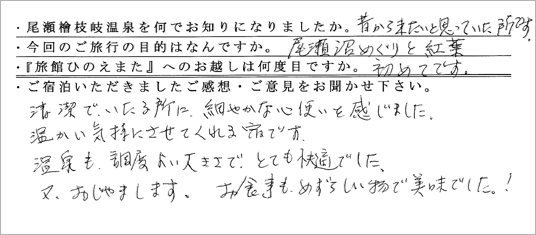 ・尾瀬檜枝岐温泉を何でお知りになりましたか。昔から来たいと思っていた所です。
・今回のご旅行の目的はなんですか。 尾瀬沼めぐりと紅葉
・『旅館ひのえまた』へのお越しは何度目ですか。 初めてです。
・ご宿泊いただきましたご感想・ご意見をお聞かせ下さい。
清潔で、いたる所に、細やかな心使いを感じました。
温かい気持にさせてくれる宿です。
温泉も、調度よい大きさで、とても快適でした。
又、おじゃまします。 お食事も、めずらしい物で美味でした。!